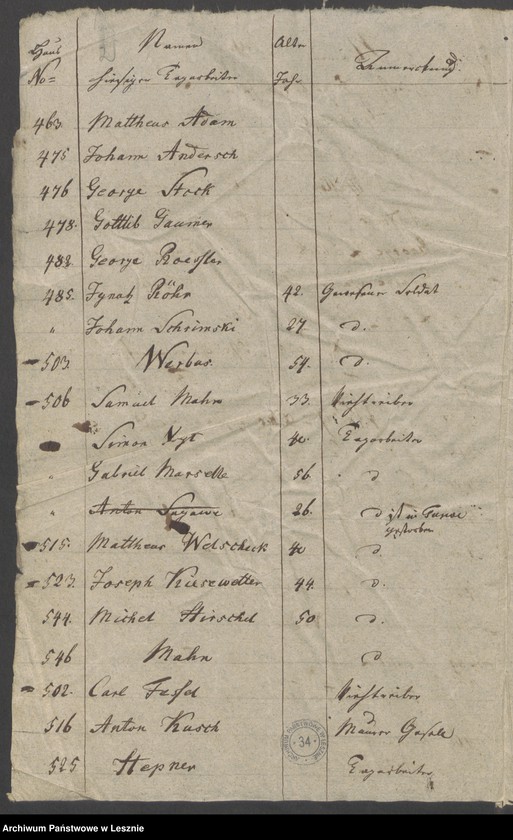 Haus Namen Alter
No= hiesiger Tagarbeiter Jahr Anmerkung.
463 Mattheus Adam
475 Johann Andersch
476 George Stock
478. Gottlieb Gaumer
482 George Roessler
485. Ignatz Röhr 42. Gewesener Soldat
" Johann Schrimski 27. d.
503. Werbas. 54. d.
506 Samuel Mahn 33. Viehtreiber
Simon 40. Tagarbeiter
" Gabriel Marselle 56 d
" Anton 26. d ist in
gestorben
515. Mattheus Welscheck 40 d.
523. Joseph Kiesewetter 44. d.
544. Michel Hirschel 50 d.
546 Mahn d
502. Carl Viehtreiber
516 Anton Kusch Maurer Geselle
525 Hepner Tagarbeiter
ARCHIWUM PAŃSTWOWE W LESZNIE
34
Archiwum Państwowe w Lesznie